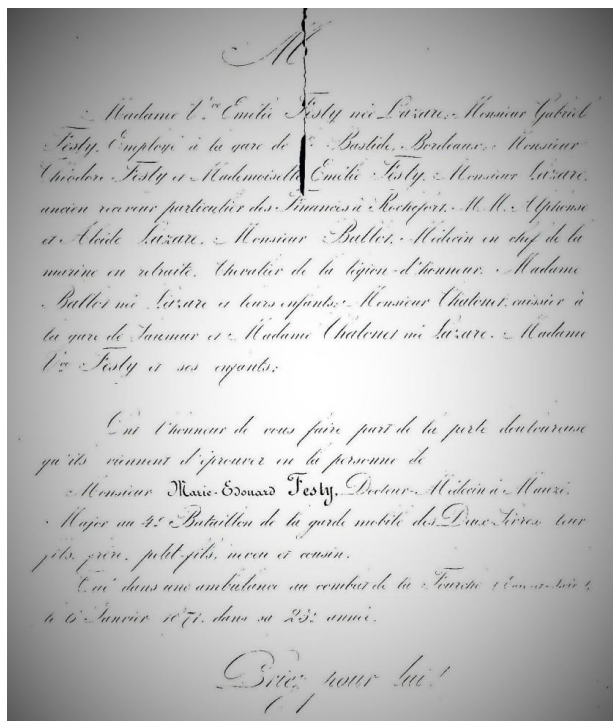 M
Madame Vve Emilie Festy née Lazare, Monsieur Gabriel
Festy, Employé à la gare de la Bastide, Bordeaux, Monsieur
Théodore Festy et Mademoiselle Emilie Festy, Monsieur Lazare,
ancien receveur particulier des Finances à Rochefort, M.M. Alphonse
et Alcide Lazare, Monsieur Ballot, Médecin en chef de la
marine en retraite, Chevalier de la légion-d'honneur, Madame
Ballot née Lazare et leurs enfants; Monsieur Chatonet, caissier à
la gare de Saumur et Madame Chatonet née Lazare, Madame
Vve Festy et ses enfants;
Ont l'honneur de vous faire part de la perte douloureuse
qu'ils viennent d'éprouver en la personne de
Monsieur Marie-Edouard Festy, Docteur-Médecin à Mauzé,
Major au 4e Bataillon de la garde mobile des Deux-Sèvres leur
fils, frère, petit-fils, neveu et cousin.
Tué dans une ambulance au combat de la Fourche (Eure-et-Loir),
le 6 Janvier 1871, dans sa 23e année.
Priez pour lui!